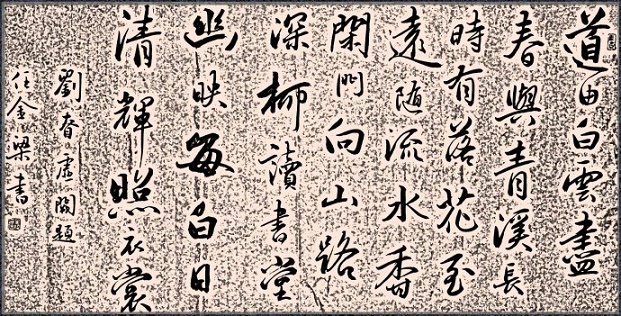 道由白雲盡
春與青溪長
時有落花至
遠隨流水香
閑門向山路
深柳讀書堂
幽映每白日
清輝照衣裳
劉眘虛闕題
任金梁書